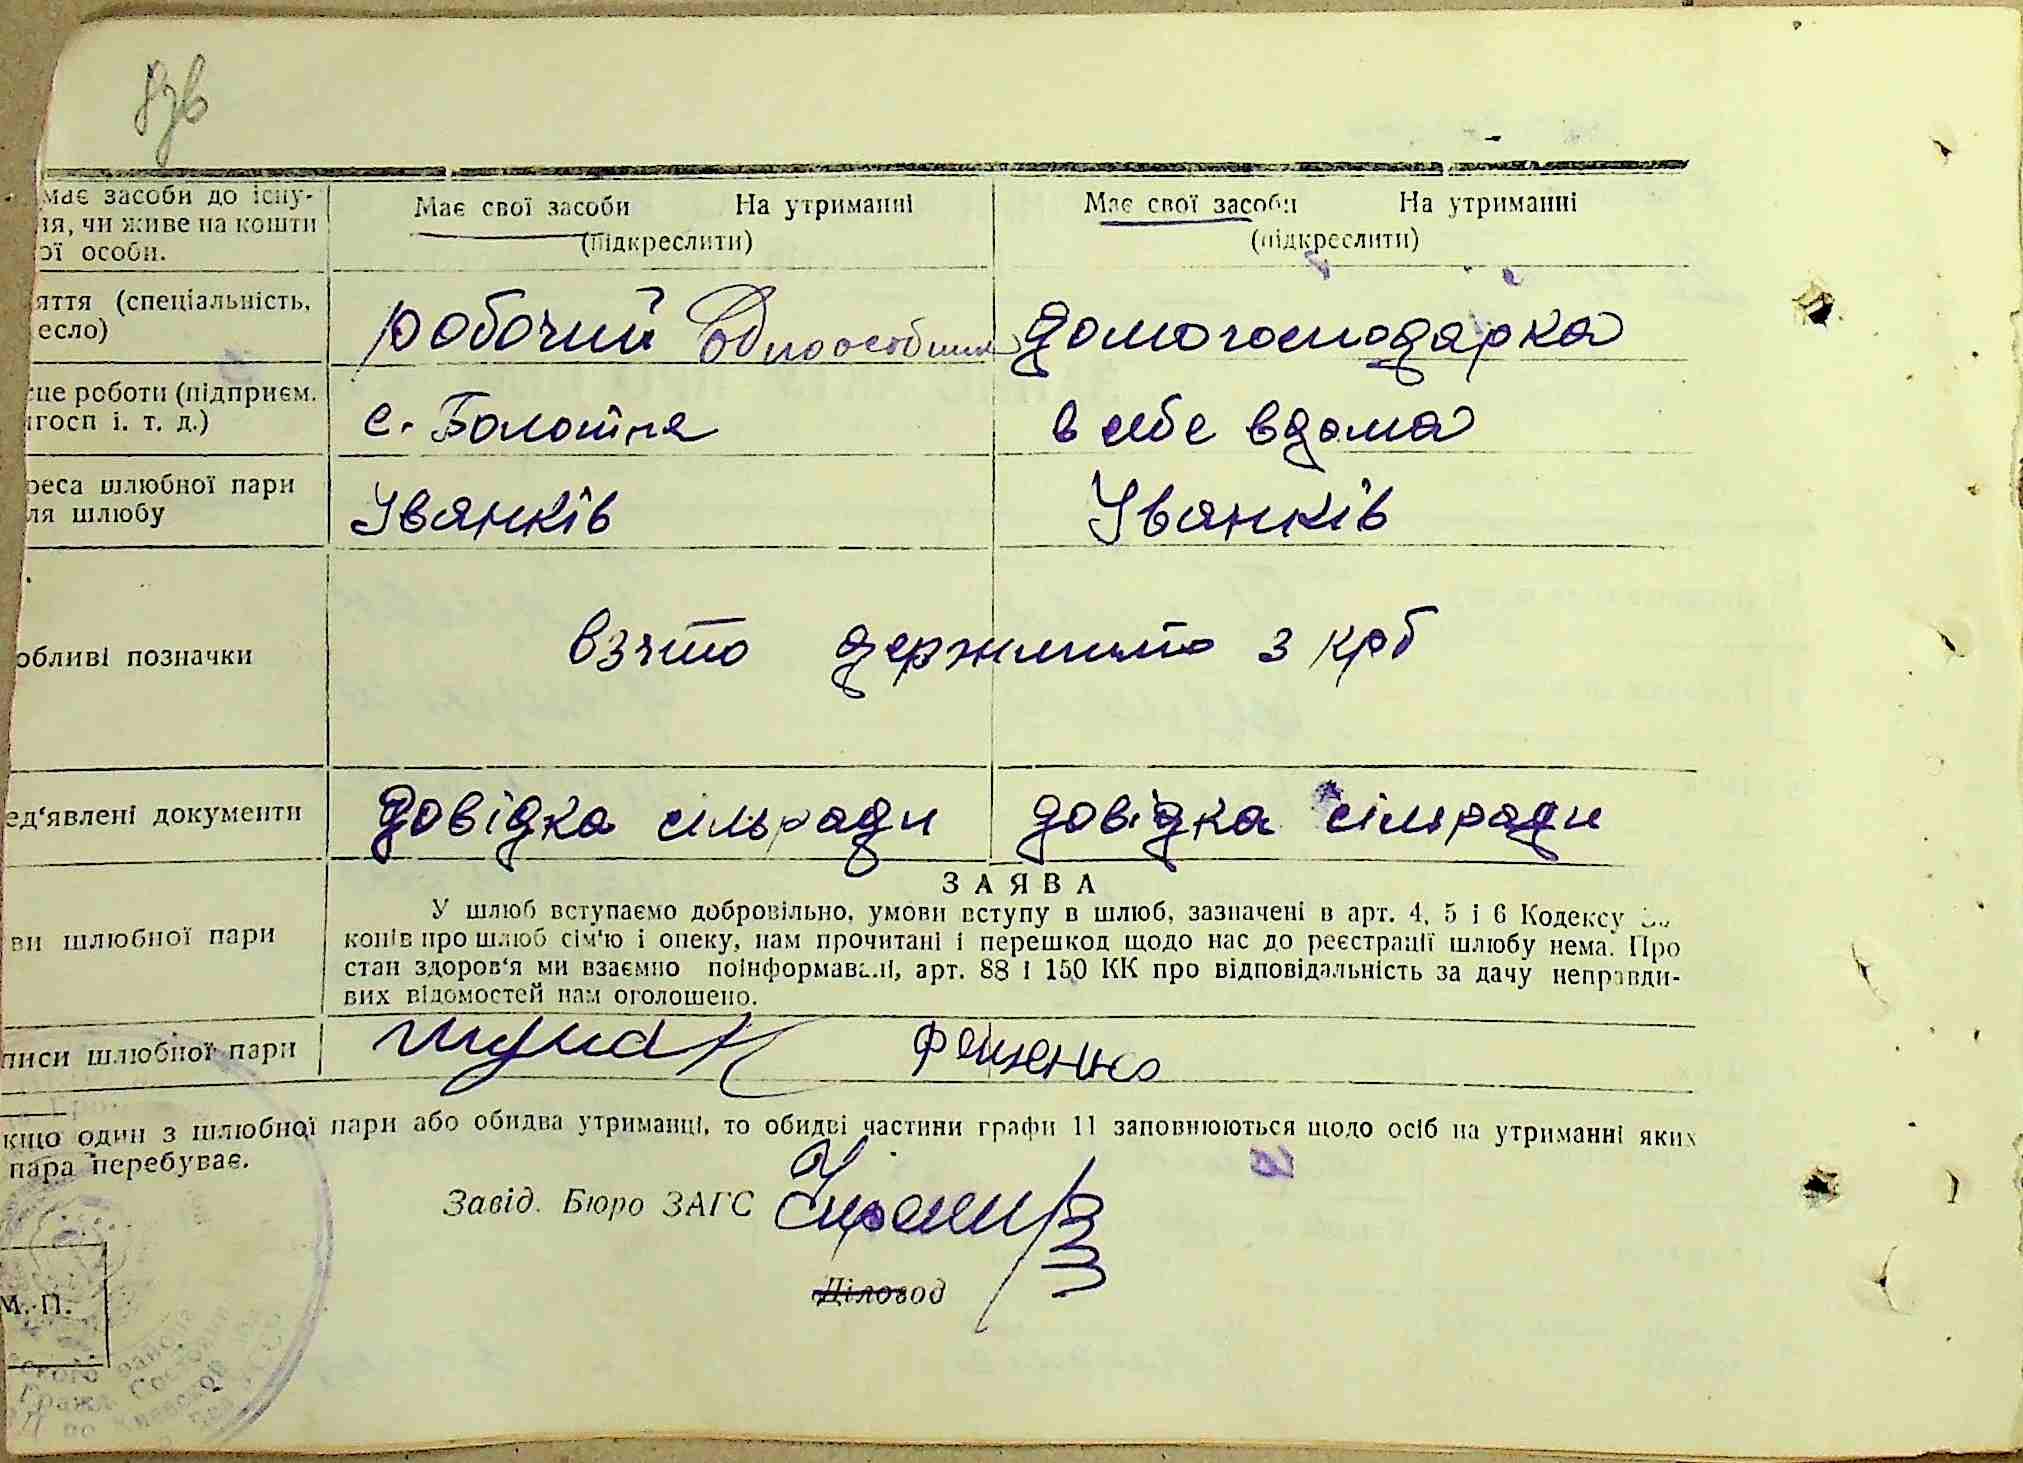 має засоби до існу-
ня, чи живе на кошти
ої особи.
Має свої засоби На утриманні
(підкреслити)
Має свої засоби На утриманні
(підкреслити)
яття (спеціальність,
есло)
робочий Одноосібник
домогосподарка
сце роботи (підприєм.
госп і. т. д.)
с. Болотня
в себе вдома
реса шлюбної пари
ля шлюбу
Іванків
Іванків
обливі позначки
взято держмито 3 крб
ед'явлені документи
довідка сільради
довідка сільради
ЗАЯВА
ви шлюбної пари
У шлюб вступаємо добровільно, умови вступу в шлюб, зазначені в арт. 4, 5 і 6 Кодексу за
конів про шлюб сім'ю і опеку, нам прочитані і перешкод щодо нас до реєстрації шлюбу нема. Про
стан здоров'я ми взаємно поінформавалі, арт. 88 і 150 КК про відповідальність за дачу неправди-
вих відомостей нам оголошено.
писи шлюбної пари
Фещенко
кщо один з шлюбної пари або обидва утриманці, то обидві частини графи 11 заповнюються щодо осіб на утриманні яких
пара перебуває.
Завід. Бюро ЗАГС
Діловод
М. П.
Гражд. Состояния
по Киевской